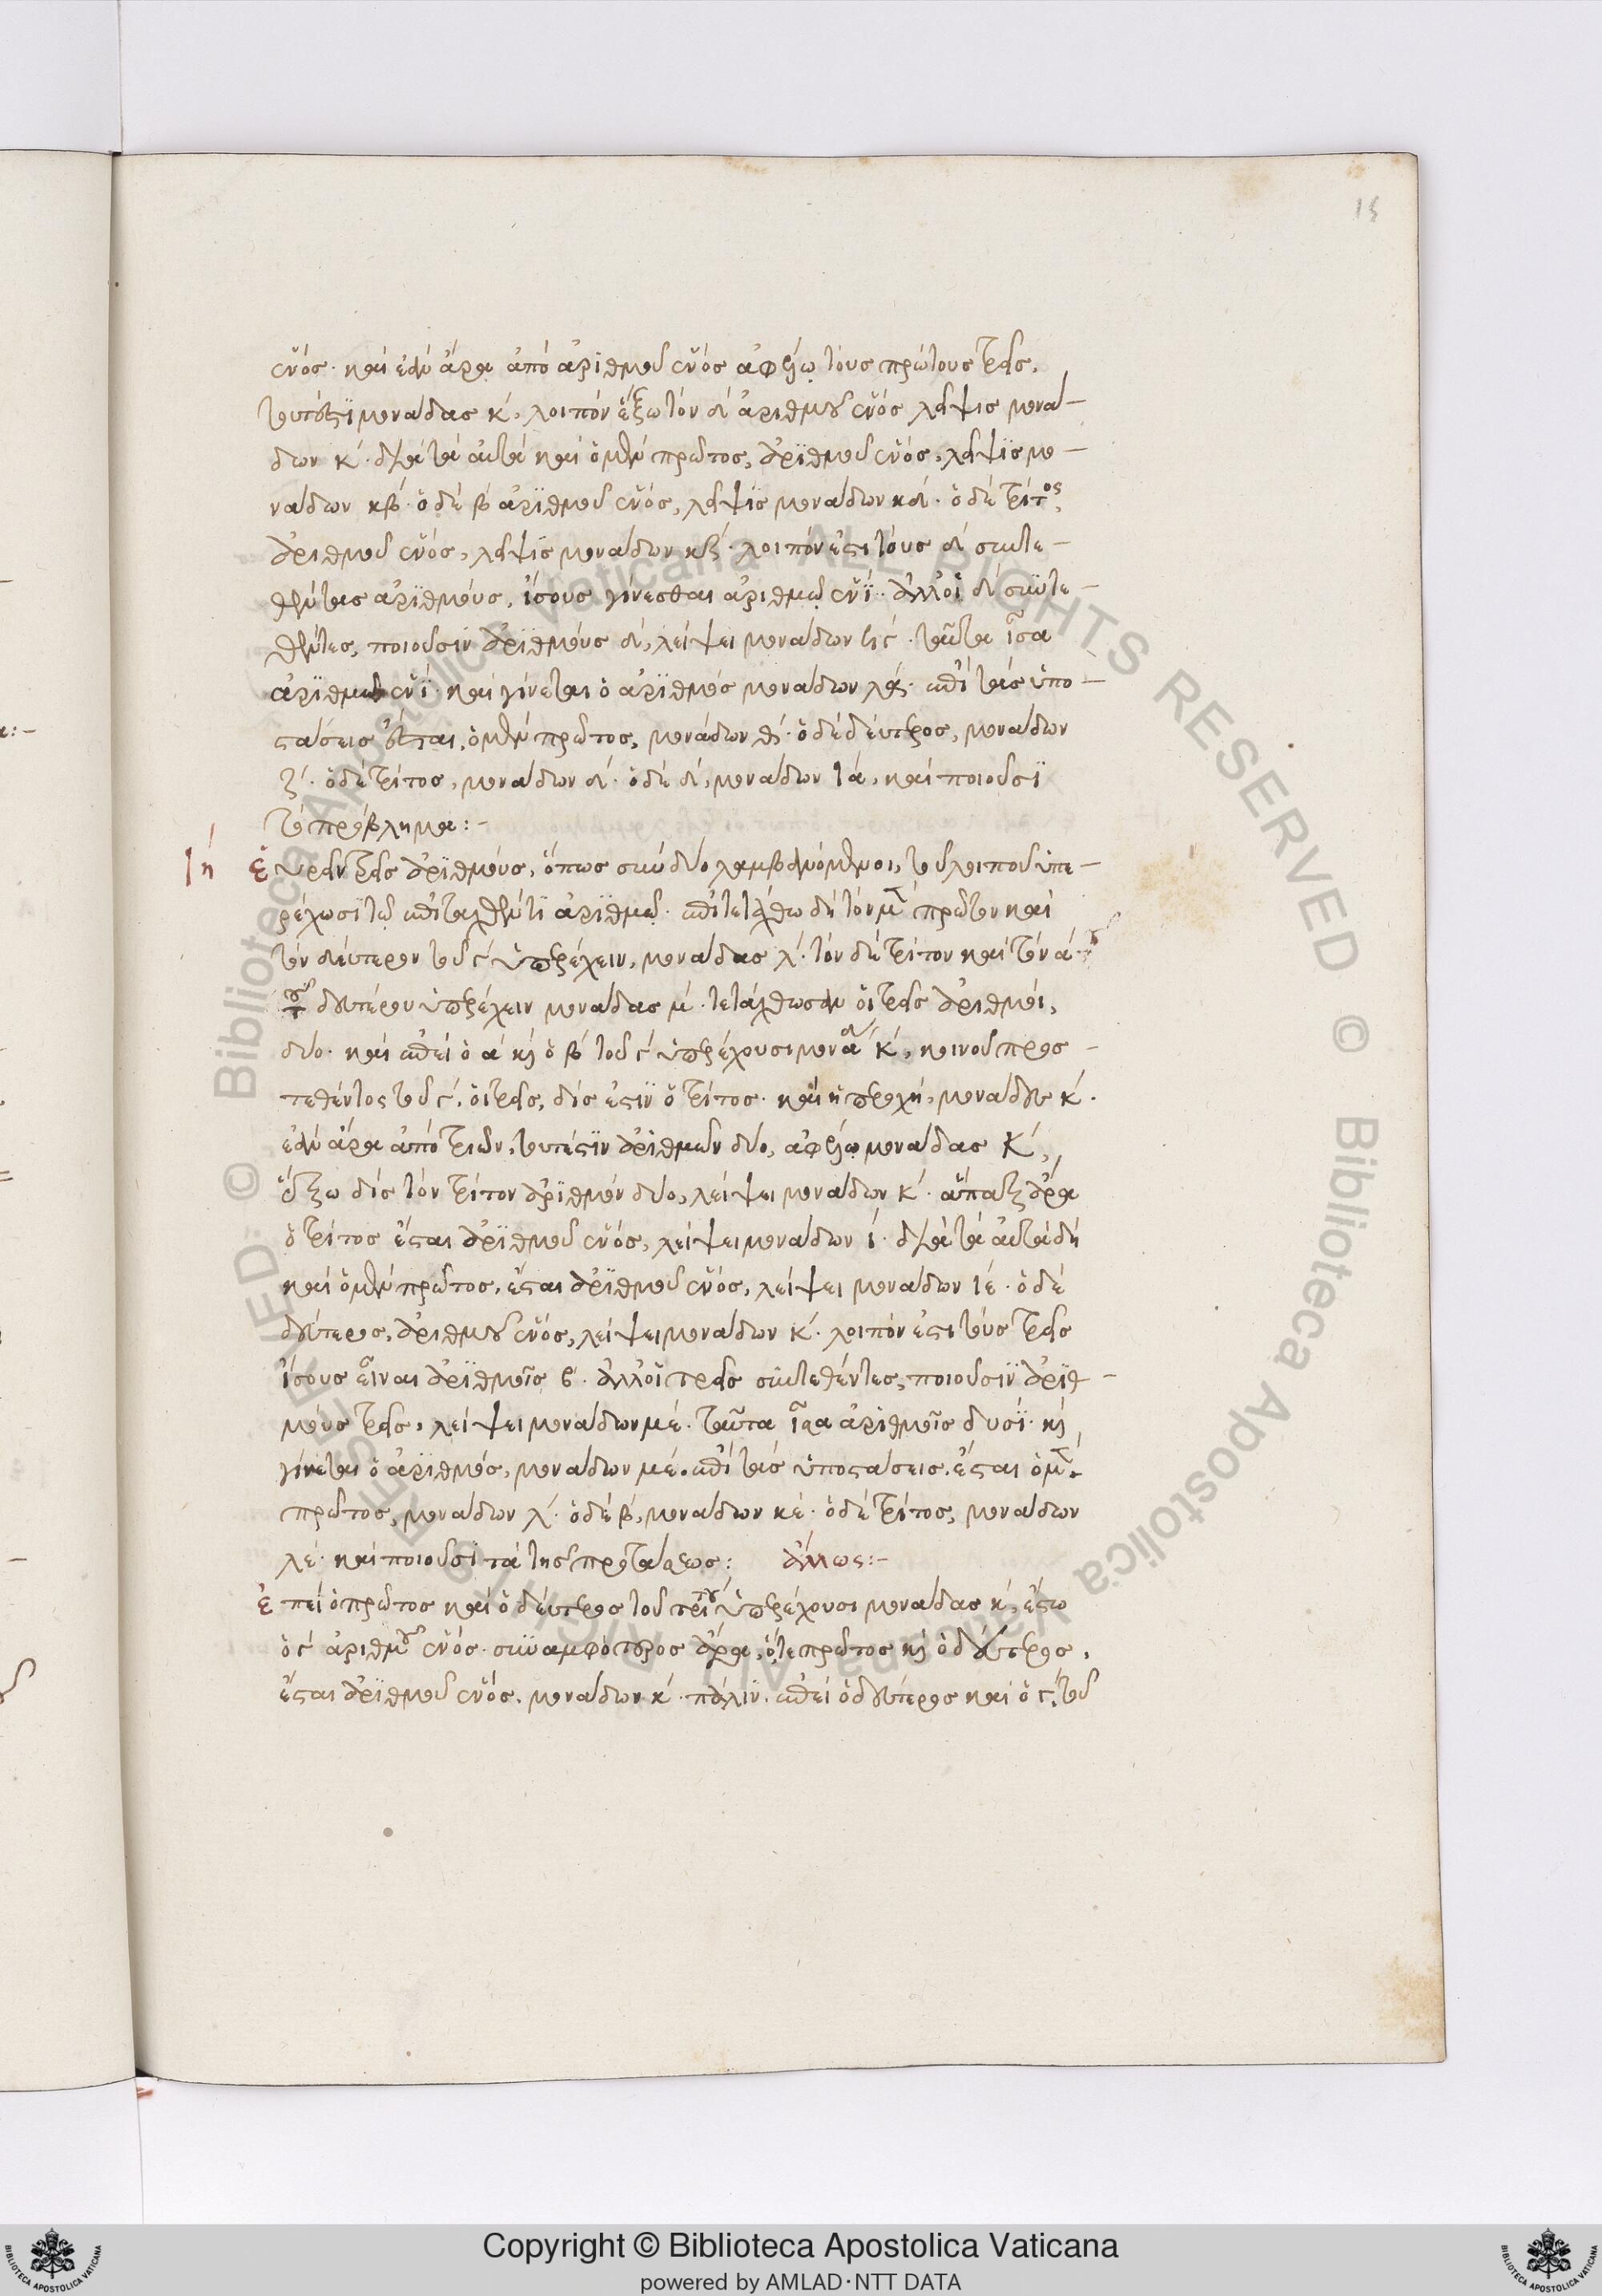 15
ἑνός· καὶ ἐὰν ἄρα ἀπὸ ἀριθμοῦ ἑνὸς ἀφέλω τοὺς πρώτους τρεῖς,
τουτέστι μονάδας κ, λοιπὸν ἕξω τὸν δ´ ἀριθμοῦ ἑνὸς λείψις μονά-
δων κ´· διὰ τὰ αὐτὰ καὶ ὁ μὲν πρῶτος, ἀριθμοῦ ἑνός, λείψις μο-
νάδων κβ· ὁ δὲ β ἀριθμοῦ ἑνός, λείψις μονάδων κδ´· ὁ δὲ τρίτος,
ἀριθμοῦ ἑνός, λείψις μονάδων κζ´· λοιπόν ἐστι τοὺς δ´ συντε-
θέντας ἀριθμούς, ἴσους γίνεσθαι ἀριθμῷ ἑνί· ἀλλ' οἱ δ´ συντε-
θέντες, ποιοῦσιν ἀριθμοὺς δ´, λείψει μονάδων · ταῦτα ἴσα
ἀριθμῷ ἑνί· καὶ γίνεται ὁ ἀριθμὸς μονάδων λα´· ἐπὶ τὰς ὑπο-
στάσεις ἔσται, ὁ μὲν πρῶτος, μονάδων θ´· ὁ δὲ δεύτερος, μονάδων
ζ´· ὁ δὲ τρίτος, μονάδων δ´· ὁ δὲ δ´, μονάδων ια´, καὶ ποιοῦσι
τὸ πρόβλημα:-
ιη Εὑρεῖν τρεῖς ἀριθμούς, ὅπως σὺν δύο λαμβανόμενοι, τοῦ λοιποῦ ὑπε-
ρέχωσι τῷ ἐπιταχθέντι ἀριθμῷ· ἐπιτετάχθω δὴ τὸν μὲν πρῶτον καὶ
τὸν δεύτερον τοῦ γ´ ὑπερέχειν, μονάδας λ´· τὸν δὲ τρίτον καὶ τὸν α´
τοῦ δευτέρου ὑπερέχειν μονάδας μ´· τετάχθωσαν οἱ τρεῖς ἀριθμοί,
δύο· καὶ ἐπεὶ ὁ α´ καὶ ὁ β´ τοῦ γ´ ὑπερέχουσι μονάδας κ´, κοινοῦ προσ-
τεθέντος τοῦ γ´, οἱ τρεῖς, δίς ἐστιν ὁ τρίτος· καὶ ἡ ὑπεροχή, μονάδων κ´·
ἐὰν ἄρα ἀπὸ τριῶν, τουτέστιν ἀριθμῶν δύο, ἀφέλω μονάδας κ´,
ἕξω δὶς τὸν τρίτον ἀριθμὸν δύο, λείψει μονάδων κ´· ἅπαξ ἄρα
ὁ τρίτος ἔσται ἀριθμοῦ ἑνός, λείψει μονάδων ι´· διὰ τὰ αὐτὰ δὴ
καὶ ὁ μὲν πρῶτος, ἔσται ἀριθμοῦ ἑνός, λείψει μονάδων ιε´· ὁ δὲ
δεύτερος, ἀριθμοῦ ἑνός, λείψει μονάδων κ´· λοιπόν ἐστι τοὺς τρεῖς
ἴσους εἶναι ἀριθμοῖς β· ἀλλ' οἱ τρεῖς συντεθέντες, ποιοῦσιν ἀριθ-
μοὺς τρεῖς, λείψει μονάδων με´· ταῦτα ἴσα ἀριθμοῖς δυσί· καὶ
γίνεται ὁ ἀριθμός, μονάδων με´· ἐπὶ τὰς ὑποστάσεις, ἔσται ὁ μὲν
πρῶτος, μονάδων λ´· ὁ δὲ β´, μονάδων κε´· ὁ δὲ τρίτος, μονάδων
λε´· καὶ ποιοῦσι τὰ τῆς προτάσεως: ἄλλως:-
Ἐπεὶ ὁ πρῶτος καὶ ὁ δεύτερος τοῦ τρίτου ὑπερέχουσι μονάδας κ´, ἔστω
ὁ γ´ ἀριθμοῦ ἑνός· συναμφότερος ἄρα, ὅ τε πρῶτος καὶ ὁ δεύτερος,
ἔσται ἀριθμοῦ ἑνός, μονάδων κ´· πάλιν, ἐπεὶ ὁ δεύτερος καὶ ὁ γ´, τοῦ
Copyright © Biblioteca Apostolica Vaticana
powered by AMLAD·NTT DATA